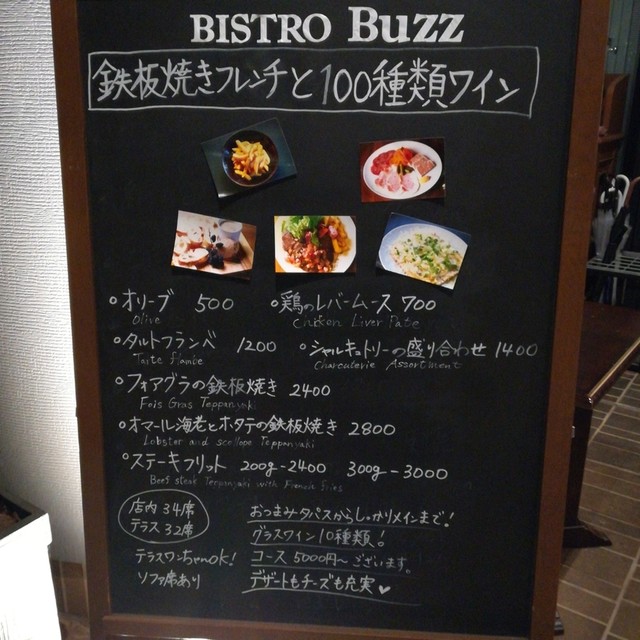 BISTRO Buzz
鉄板焼きフレンチと100種類ワイン
オリーブ 500 鶏のレバームース 700
Olive Chicken Liver Pate
タルトフランベ 1200 シャルキュトリーの盛り合わせ 1400
Tarte flambe Charcuterie Assortment
フォアグラの鉄板焼き 2400
Fois Gras Teppanyaki
オマール海老とホタテの鉄板焼き 2800
Lobster and scellope Teppanyaki
ステーキフリット 200g-2400 300g-3000
Beef steak Teppanyaki with French fries
店内 34席
テラス 32席
テラスワンちゃんOK!
ソファ席あり
おつまみタパスからしっかりメインまで!
グラスワイン10種類!
コース 5000円〜ございます。
デザートもチーズも充実♥